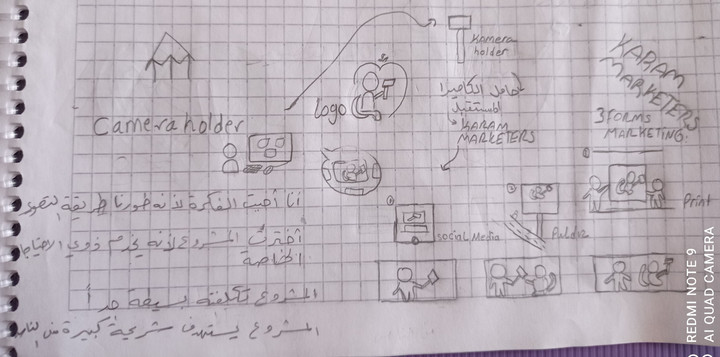 Camera holder
logo
Kamera
holder
حامل الكاميرا
KARAM
MARKETERS
KARAM
MARKETERS
3 FORMS
MARKETING:
Print
social Media
أنا أحببت الفكرة لأنه طورنا طريقة التصوير
أخترت المشروع لأنه يخدم ذوي الاحتياجات
الخاصة
المشروع تكلفته بسيطة جداً
المشروع يستهدف شريحة كبيرة من الناس
REDMI NOTE 9
AI QUAD CAMERA